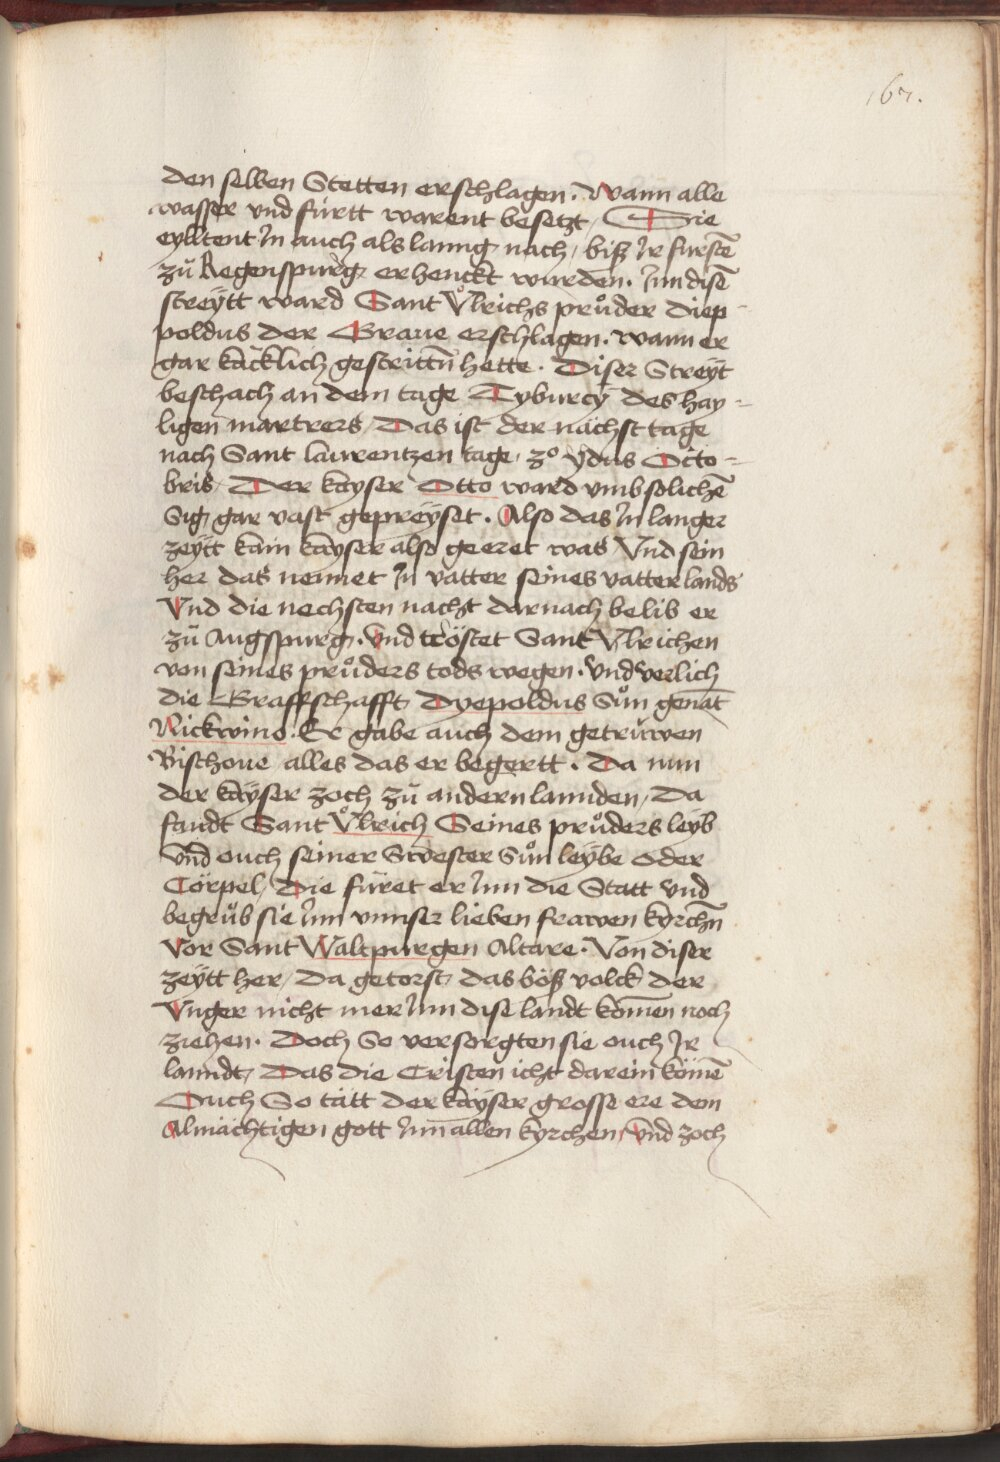 167.
den selben Stetten erschlagen. Wann alle
wasser vnd fürtt warent besetzt / Sie
eylltent Jn auch als lanng nach / biß Jr fürstē
zů Regenspurg erhenckt wurden. Jnn disē
streÿtt ward Sant Vͦlrichs průder Diep-
poldus der Graue erschlagen. wann er
gar käcklich gestrittn̄ hette. Diser Streÿt
beschach an dem tage Tyburcÿ des hay-
ligen martrers / Das ist der nächst tage
nach Sant laurentzen tage / 3º ÿdus Octo-
bris / Der kaÿser Otto ward vmb solichē
Sig gar vast gepreÿset. Also das Jn langer
zeÿtt kain kaÿser also geeret was Vnd sein
her das nennet Jn vatter seines vatterlands
Vnd die nechsten nacht darnach belib er
zů Augspurg. vnd tröstet Sant Vlrichen
von seines průders tods wegen. vnd verlich
die Graffschafft Dyepoldus Sůn genāt
Rickwino. Er gabe auch dem getrüwen
Bischoue alles das er begertt. Da nun
der kaÿser zoch zů andern lannden / Da
fandt Sant Vͦlrich Seines průders leyb
vnd ouch seiner Swester Sůn leÿbe oder
Cörpel / Die füret er Jnn die Statt vnd
begrůb sie Jnn vnnser lieben frawen kyrchn̄
Vor Sant Waltpurgen Altare. Von diser
zeÿtt her / Da getorst das böß volck der
Vnger nicht mer Jnn dise landt komen noch
ziehen. Doch So versorgten sie ouch Jr
lanndt / Das die Cristen icht darein kömē
Ouch So tätt der kaÿser grosse ere dem
Almächtigen gott Jnn allen kyrchen / vnd zoch